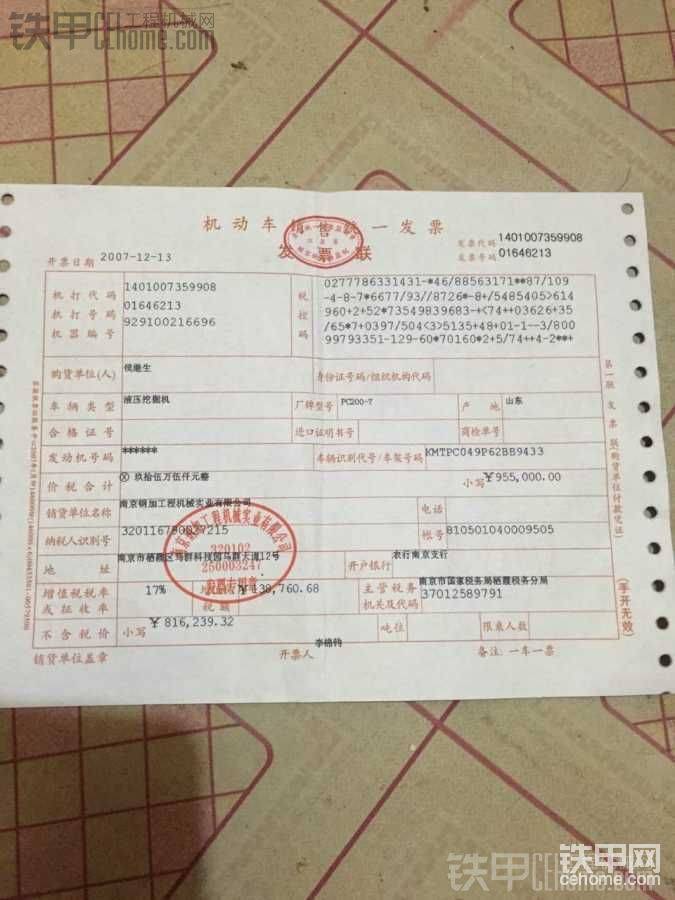 铁甲工程机械网
cehome.com
机动车销售统一发票
发票联
发票代码 1401007359908
发票号码 01646213
开票日期 2007-12-13
机打代码 1401007359908
机打号码 01646213
机器编号 929100216696
税控码
0277786331431-*46/88563171**87/109
-4-8-7*6677/93//8726*-8+/5485405>614
960+2+52*73549839683-+<74++03626+35
/65*7+0397/504<3>5135+48+01-1--3/800
99793351-129-60*70160*2+5/74++4-2**+
购货单位(人) 侯继生 身份证号码/组织机构代码
车辆类型 液压挖掘机 厂牌型号 PC200-7 产地 山东
合格证号 进口证明书号 商检单号
发动机号码 ****** 车辆识别代号/车架号码 KMTPC049P62BB9433
价税合计 ⊗ 玖拾伍万伍仟元整 小写 ￥955,000.00
销货单位名称 南京钢加工程机械实业有限公司 电话
纳税人识别号 账号 810501040009505
地址 南京市栖霞区马群科技园马群大道12号 开户银行 农行南京支行
增值税税率或征收率 17% 增值税税额 ￥138,760.68 主管税务机关及代码 南京市国家税务局栖霞税务分局 37012589791
不含税价 小写 ￥816,239.32 吨位 限乘人数
销货单位盖章 开票人 备注: 一车一票
第一联 发票联(购货单位付款凭证)
(手开无效)
320102
250003247
发票专用章
铁甲网
cehome.com